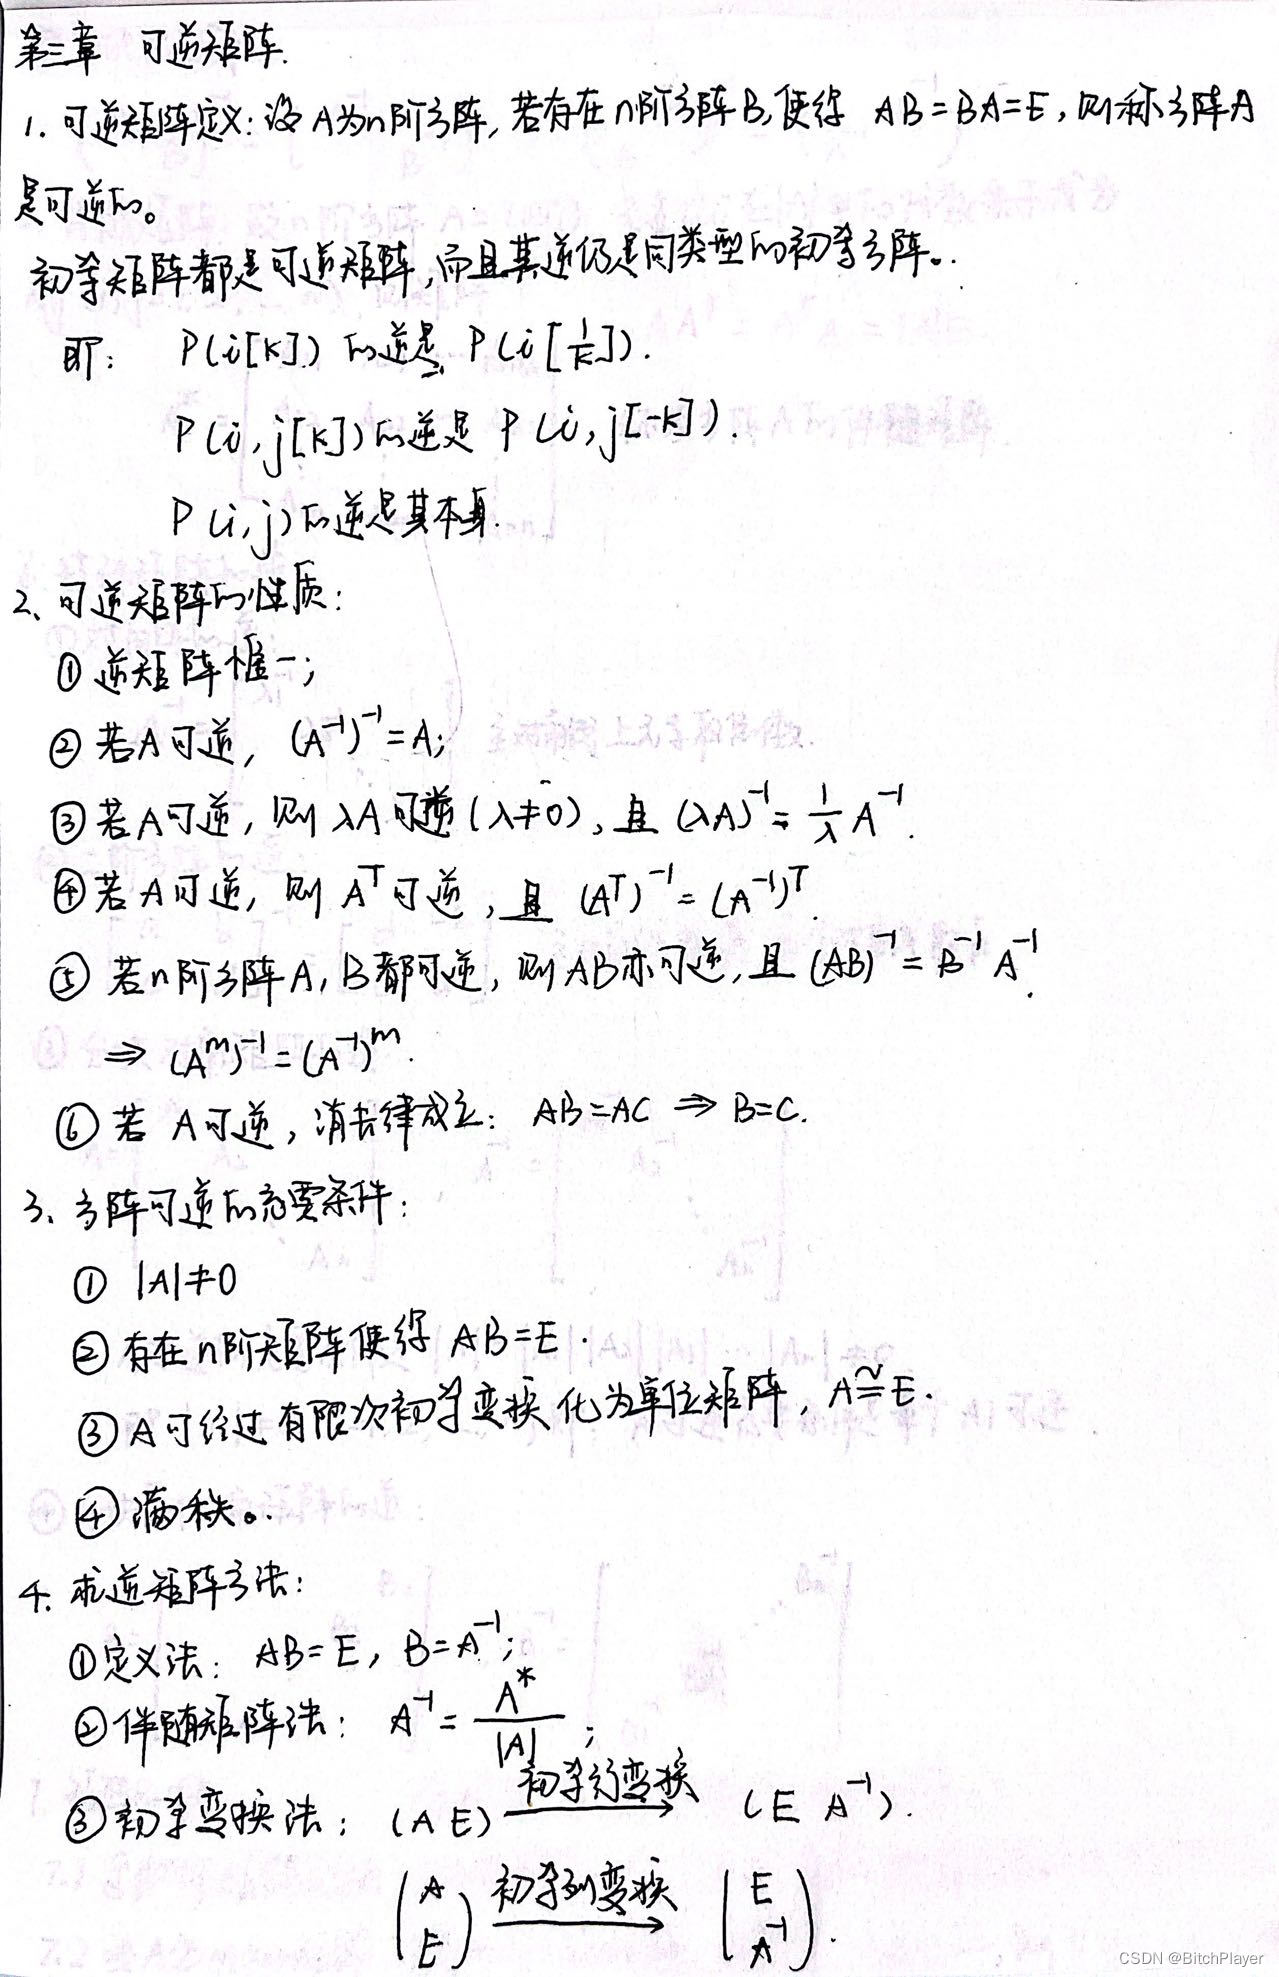 第三章 可逆矩阵.
1. 可逆矩阵定义: 设A为n阶方阵, 若存在n阶方阵B, 使得 AB=BA=E, 则称方阵A
是可逆的。
初等矩阵都是可逆矩阵, 而且其逆仍是同类型的初等方阵。
即: P(i[k]) 的逆是 P(i[1/k]).
P(i,j[k])的逆是 P(i,j[-k]).
P(i,j)的逆是其本身.
2、可逆矩阵的性质:
① 逆矩阵惟一;
② 若A可逆, (A⁻¹)⁻¹=A;
③ 若A可逆, 则λA可逆(λ≠0), 且 (λA)⁻¹= 1/λ A⁻¹.
④ 若A可逆, 则 Aᵀ可逆, 且 (Aᵀ)⁻¹=(A⁻¹)ᵀ.
⑤ 若n阶方阵A, B都可逆, 则AB亦可逆, 且(AB)⁻¹=B⁻¹A⁻¹.
⇒ (Aᵐ)⁻¹=(A⁻¹)ᵐ.
⑥ 若 A可逆, 消去律成立: AB=AC ⇒ B=C.
3、方阵可逆的充要条件:
① |A|≠0
② 存在n阶矩阵使得 AB=E.
③ A可经过有限次初等变换化为单位矩阵, A≅E.
④ 满秩。
4. 求逆矩阵方法:
①定义法: AB=E, B=A⁻¹;
②伴随矩阵法: A⁻¹= A*/|A| ;
③初等变换法: (A E) 初等行变换→ (E A⁻¹).
(A E) 初等列变换→ (E A⁻¹).
CSDN @BitchPlayer